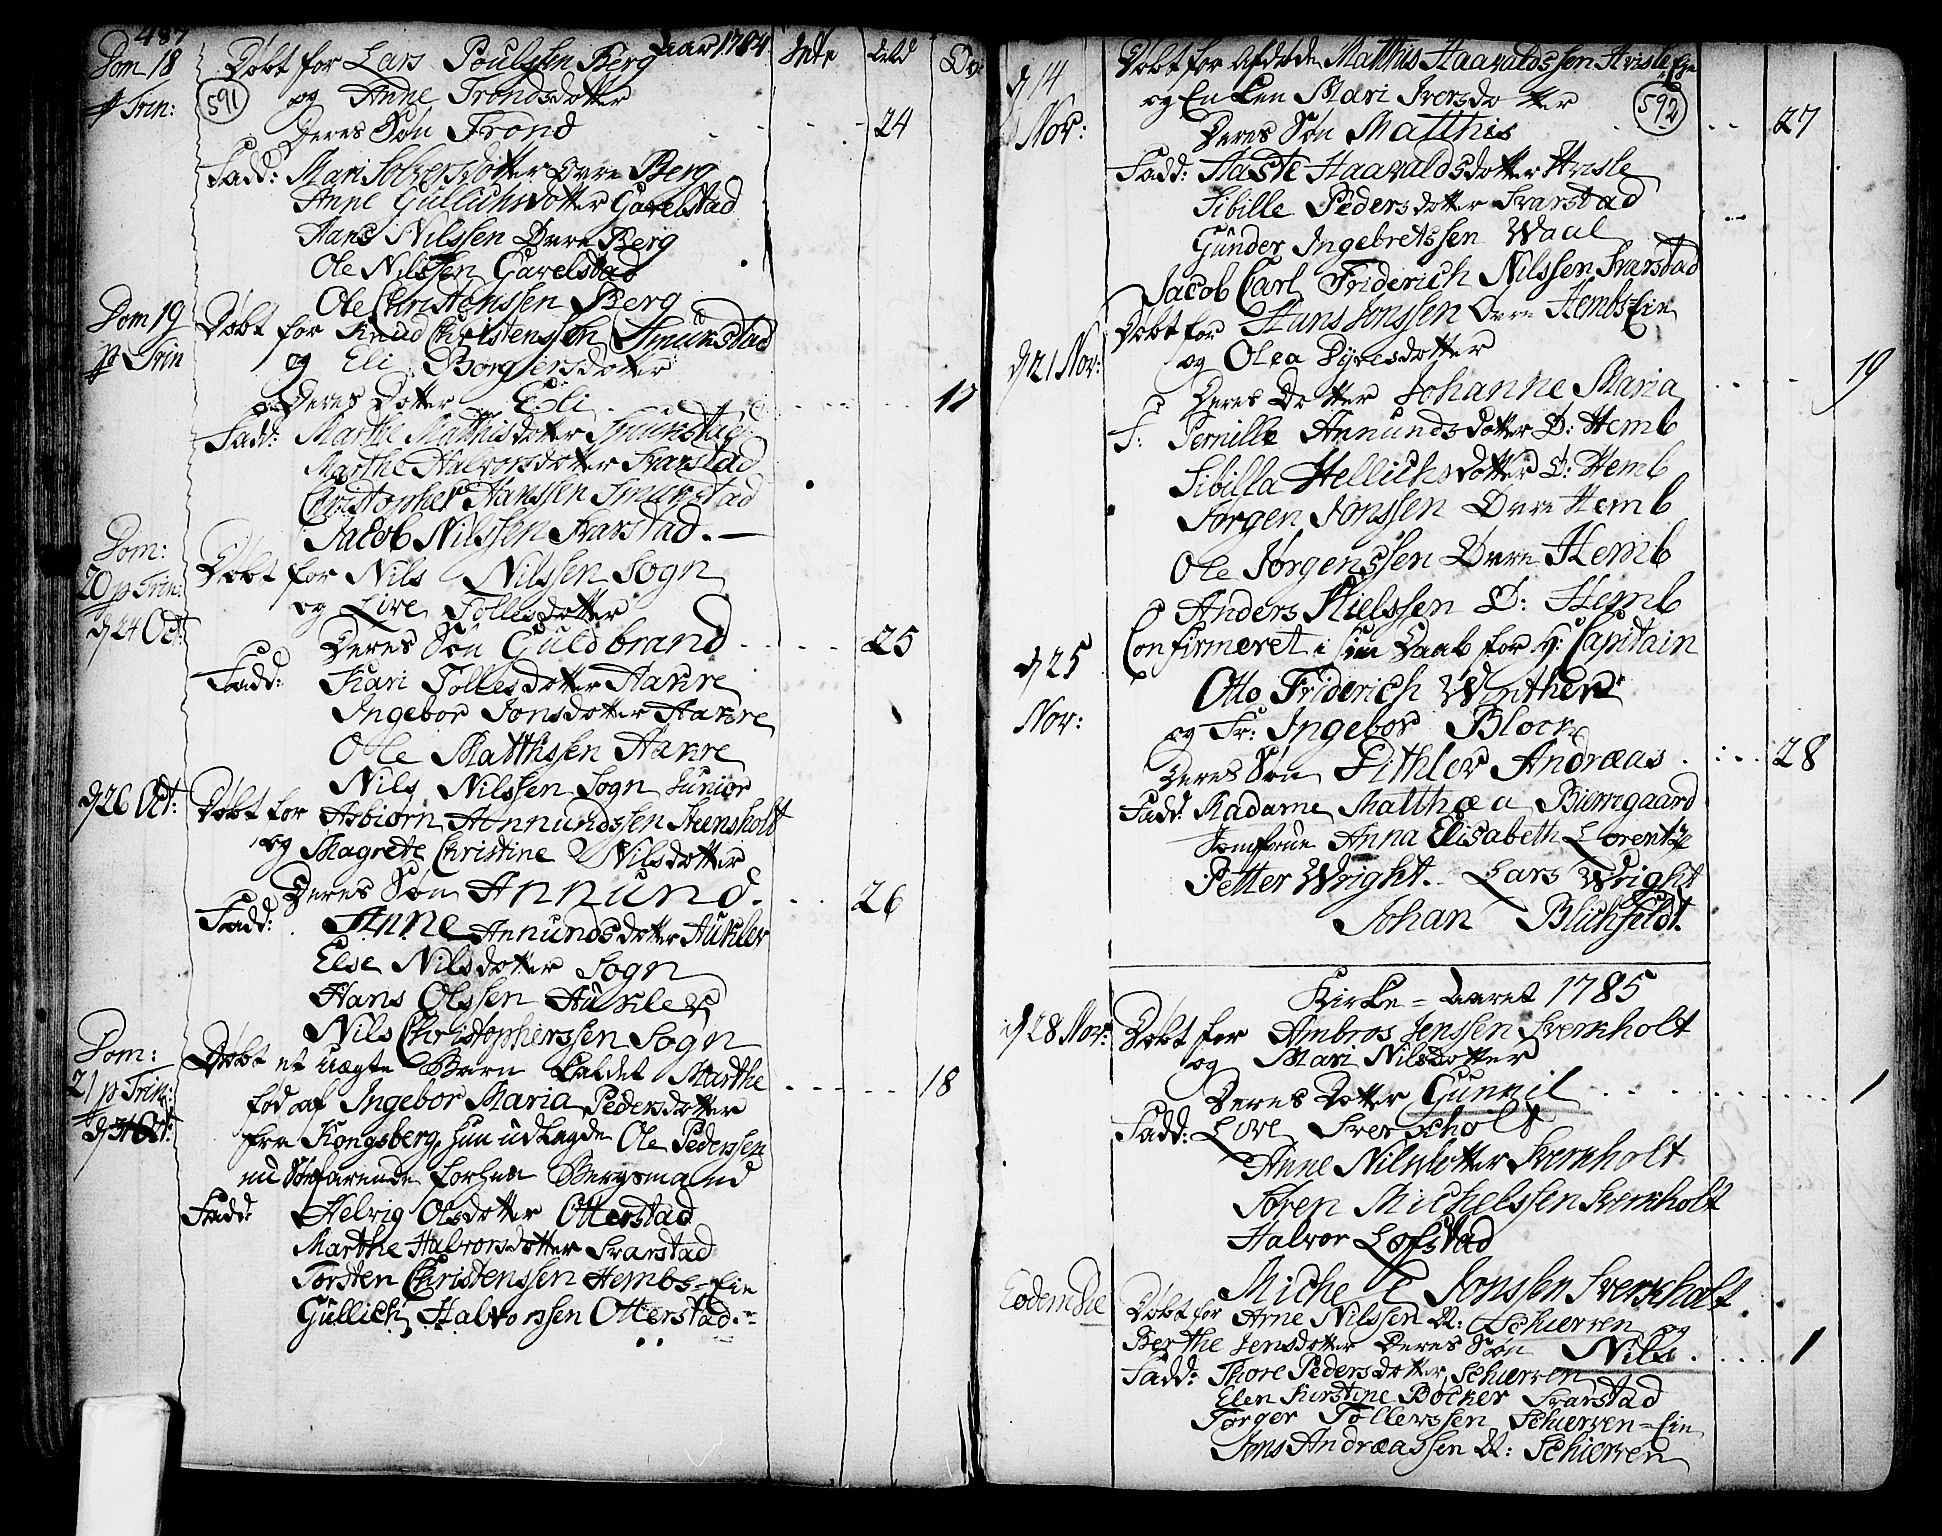 487
Aar 1784
Dom 18
p Trin:
591
Døbt for Lars Poulssen Berg
og Anne Trondsdotter
Deres Søn Trond - - - 24
Fadd: Mari Solversdotter Øvre Berg
Anne Gullichsdotter Gavelstad
Hans Nilssen Øvre Berg
Ole Nilssen Gavelstad
Ole Christenssen Berg
Dom 19
p Trin
Døbt for Knud Christenssen Smukstad
og Eli Borgersdotter
Deres Dotter Eli - - - 17
Fadd: Marthe Mathisdotter Smukstad
Marthe Halvorsdotter Svarstad
Christopher Hanssen Smukstad
Jacob Nilssen Svarstad. —
Dom:
20 p Trin:
d 24 Oct:
Døbt for Nils Nilssen Sogn
og Live Tollesdotter
Deres Søn Guldbrand - - - 25
Fadd: Kari Tollesdotter Hakre
Ingebor Jonsdotter Hakre
Ole Matthissen Hakre
Nils Nilssen Sogn Junior
d 26 Oct:
Døbt for Asbiørn Annundssen Steensholt
og Magrete Christine Nilsdotter
Deres Søn Annund. - - 26
Fadd: Anne Annundsdotter
Else Nilsdotter Sogn
Hans Olssen
Nils Christopherssen Sogn
Dom:
21 p Trin:
d 31 Oct:
Døbt et uægte Barn kaldet Marthe - - - 18
fød af Ingebor Maria Pedersdotter
fra Kongsberg, hun udlagde Ole Pederssen
forhen Bergsmand
Fadd: Helvig Olsdotter Otterstad
Marthe Halvorsdotter Svarstad
Torsten Christenssen Hembs-Eie
Gullich Halvorssen Otterstad.
d 14
Nov:
592
Døbt for afdøde Matthis Haavaldssen Hvisle Eje
og Enken Mari Iversdotter
Deres Søn Matthis - - 27
Fadd: Aaste Haavaldsdotter Hvisle
Sibille Pedersdotter Svarstad
Gunder Ingebretssen Waal
Jacob Carl Friderich Nilssen Svarstad
d 21 Nov:
Døbt for Hans Jonssen Øvre Hembs-Eie
og Olea Syversdotter
Deres Dotter Johanne Maria - - - 19
F: Pernille Annundsdotter Ø: Hemb
Sibilla Hellichsdotter Ø: Hemb
Jørgen Jonssen Øvre Hemb
Ole Jørgenssen Øvre Hemb
Anders Nielssen Ø: Hemb
d 25
Nov:
Confirmeret i sin Daab for H: Capitain
Otto Friderich Winther
og Fr: Ingebor Block
Deres Søn Dithlev Andræas - - - 28
Fadd: Madame Matthæa Biørregaard
Jomfrue Anna Elisabeth Lorentze
Petter Wright. Lars Wright
Johan Blichfeldt.
Kirke-Aaret 1785
d 28 Nov:
Døbt for Ambros Jenssen Sverkholt
og Mari Nilsdotter
Deres Dotter Gunnil - - - 1
Fadd: Live Sverkholt
Anne Nilsdotter Sverkholt
Søren Michelssen Sverkholt
Halvor Lofstad
Michel Jonssen Sverkholt.
Eodem Die
Døbt for Arne Nilssen N: Schierven og
Berthe Jensdotter Deres Søn Nils - - - 1
Fadd: Thore Pedersdotter Schierven
Elen Kirstine Bøcker Svarstad
Torger Tollerssen Schierven-Eie
Jens Andræassen N: Schierven